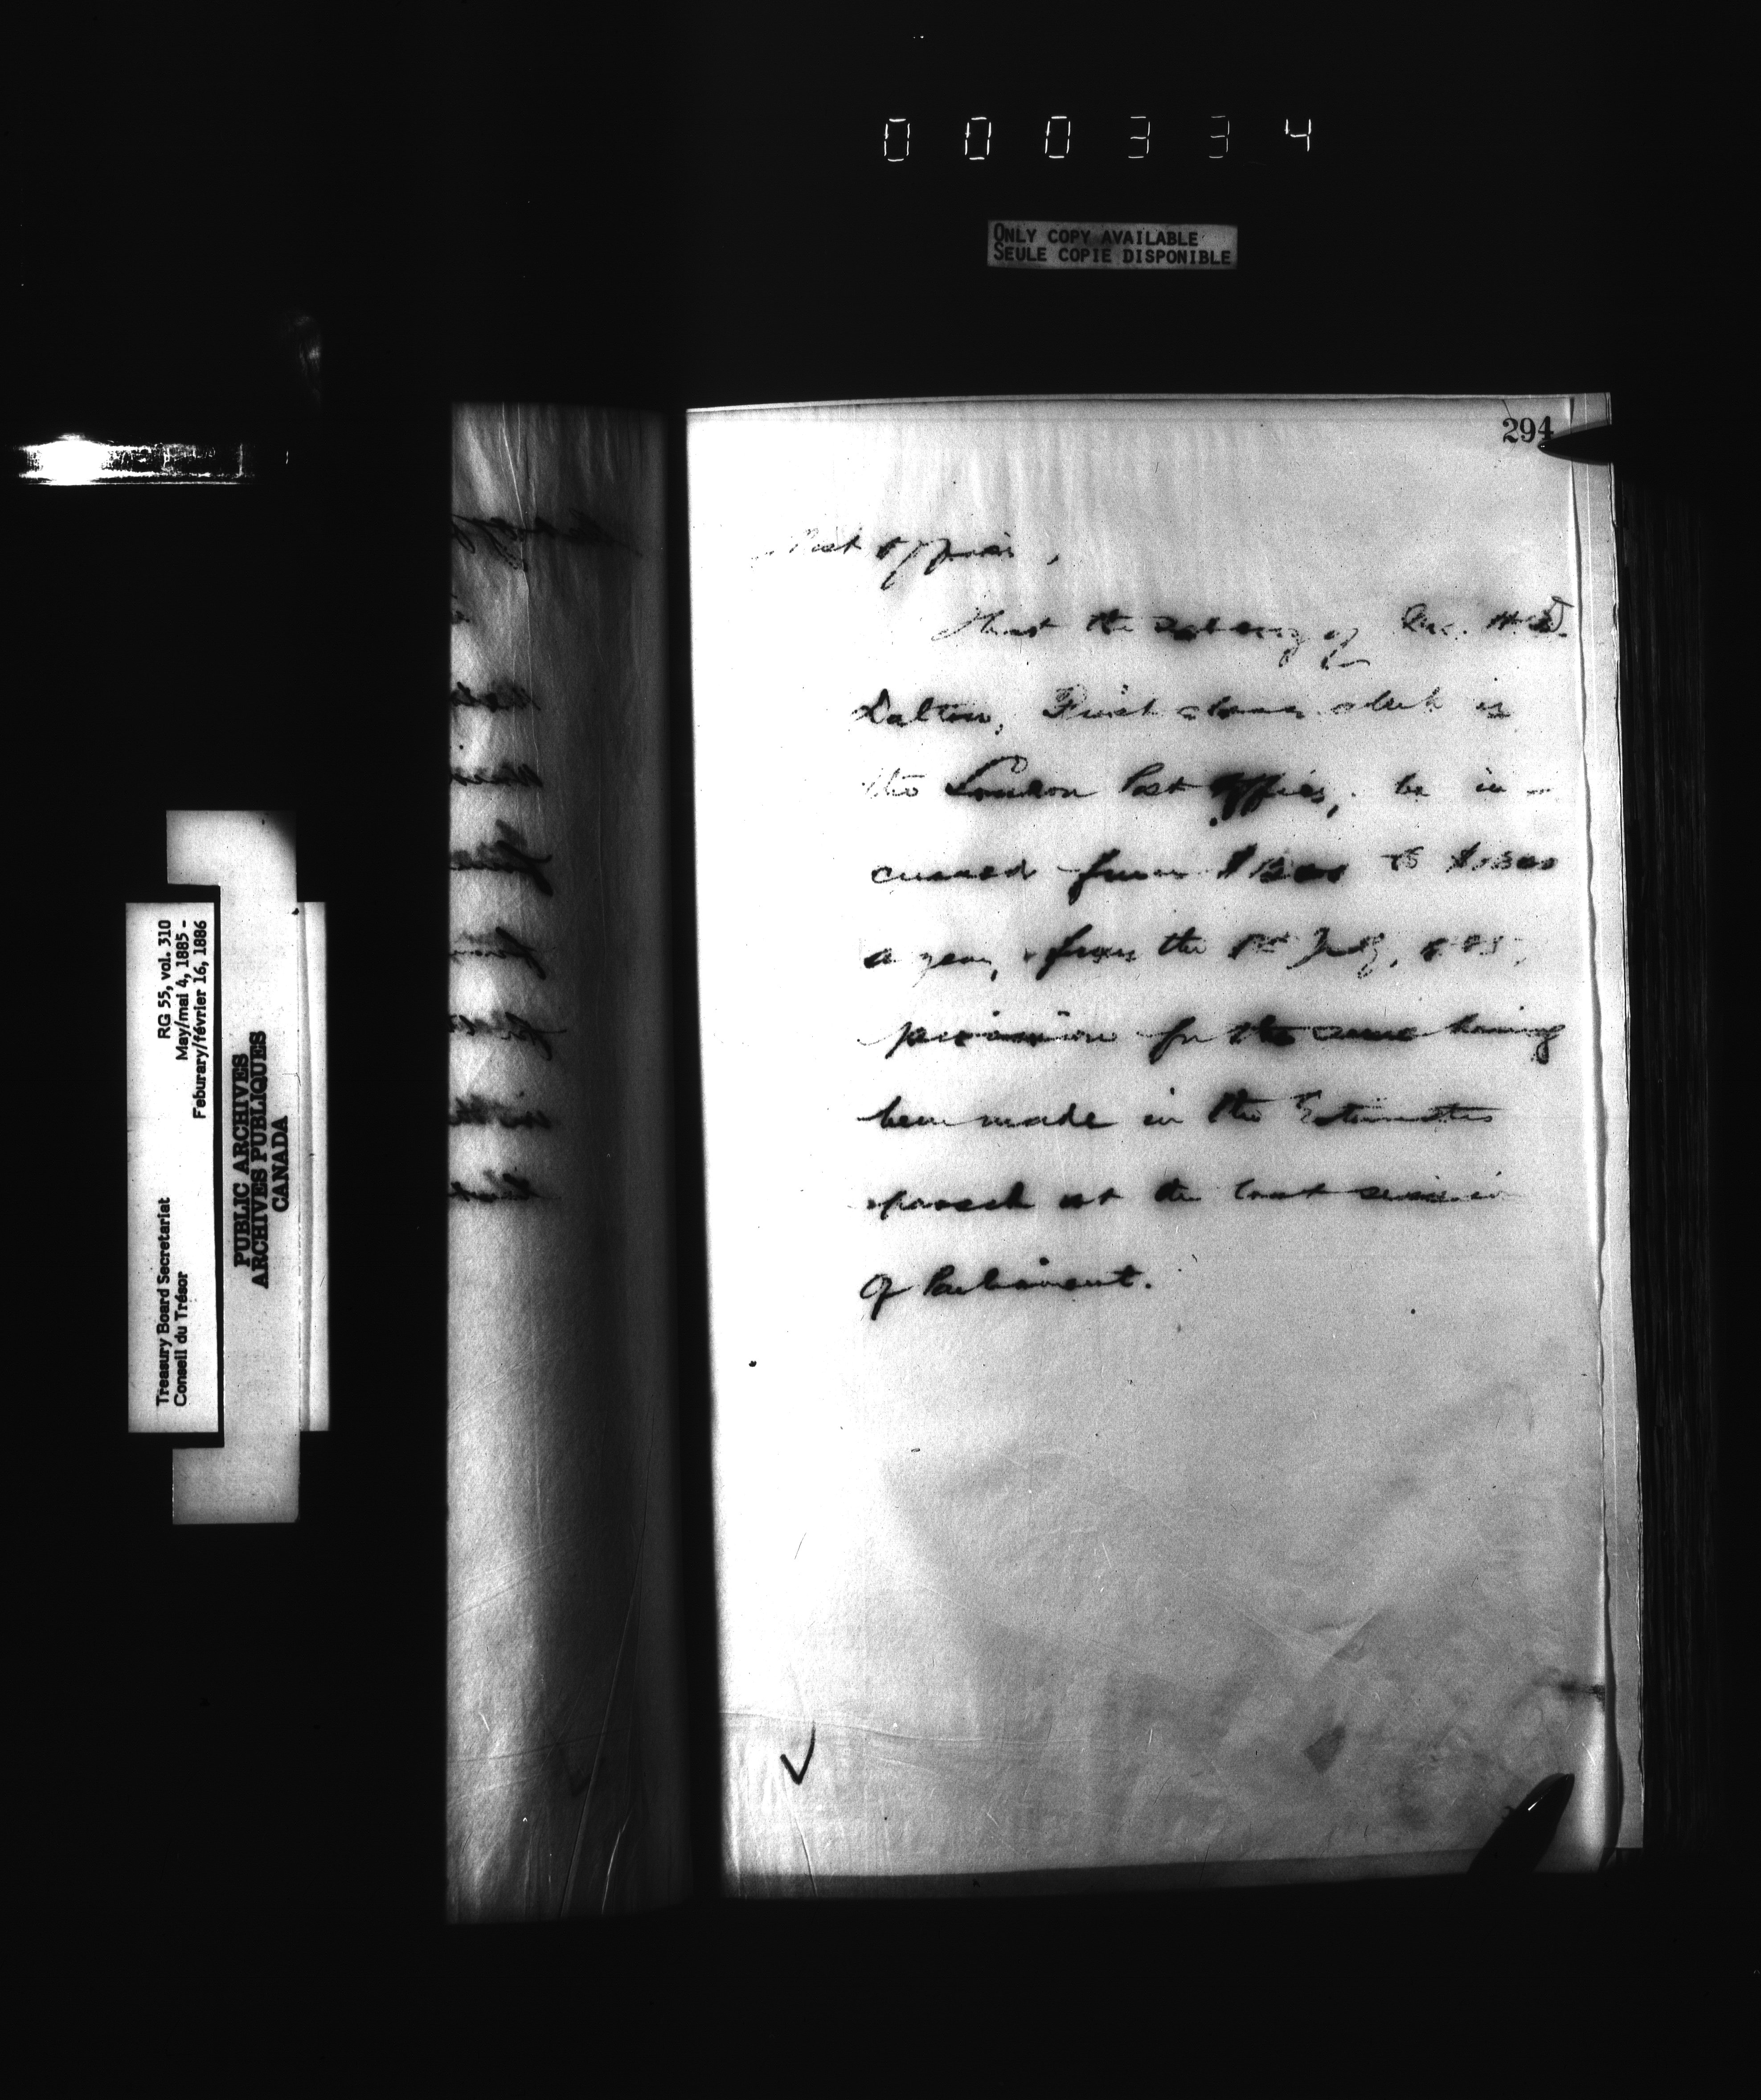 000334
ONLY COPY AVAILABLE
SEULE COPIE DISPONIBLE
294
Post Office,
That the salary of Mr. H. D.
Dalton, First class clerk in
the London Post Office, be in-
creased from $1200 to
a year, from the 1st July,
provision for the same having
been made in the Estimates
passed at the last session
of Parliament.
RG 55, vol. 310
May/mai 4, 1885 -
Feburary/février 16, 1886
Treasury Board Secretariat
Conseil du Trésor
PUBLIC ARCHIVES
ARCHIVES PUBLIQUES
CANADA